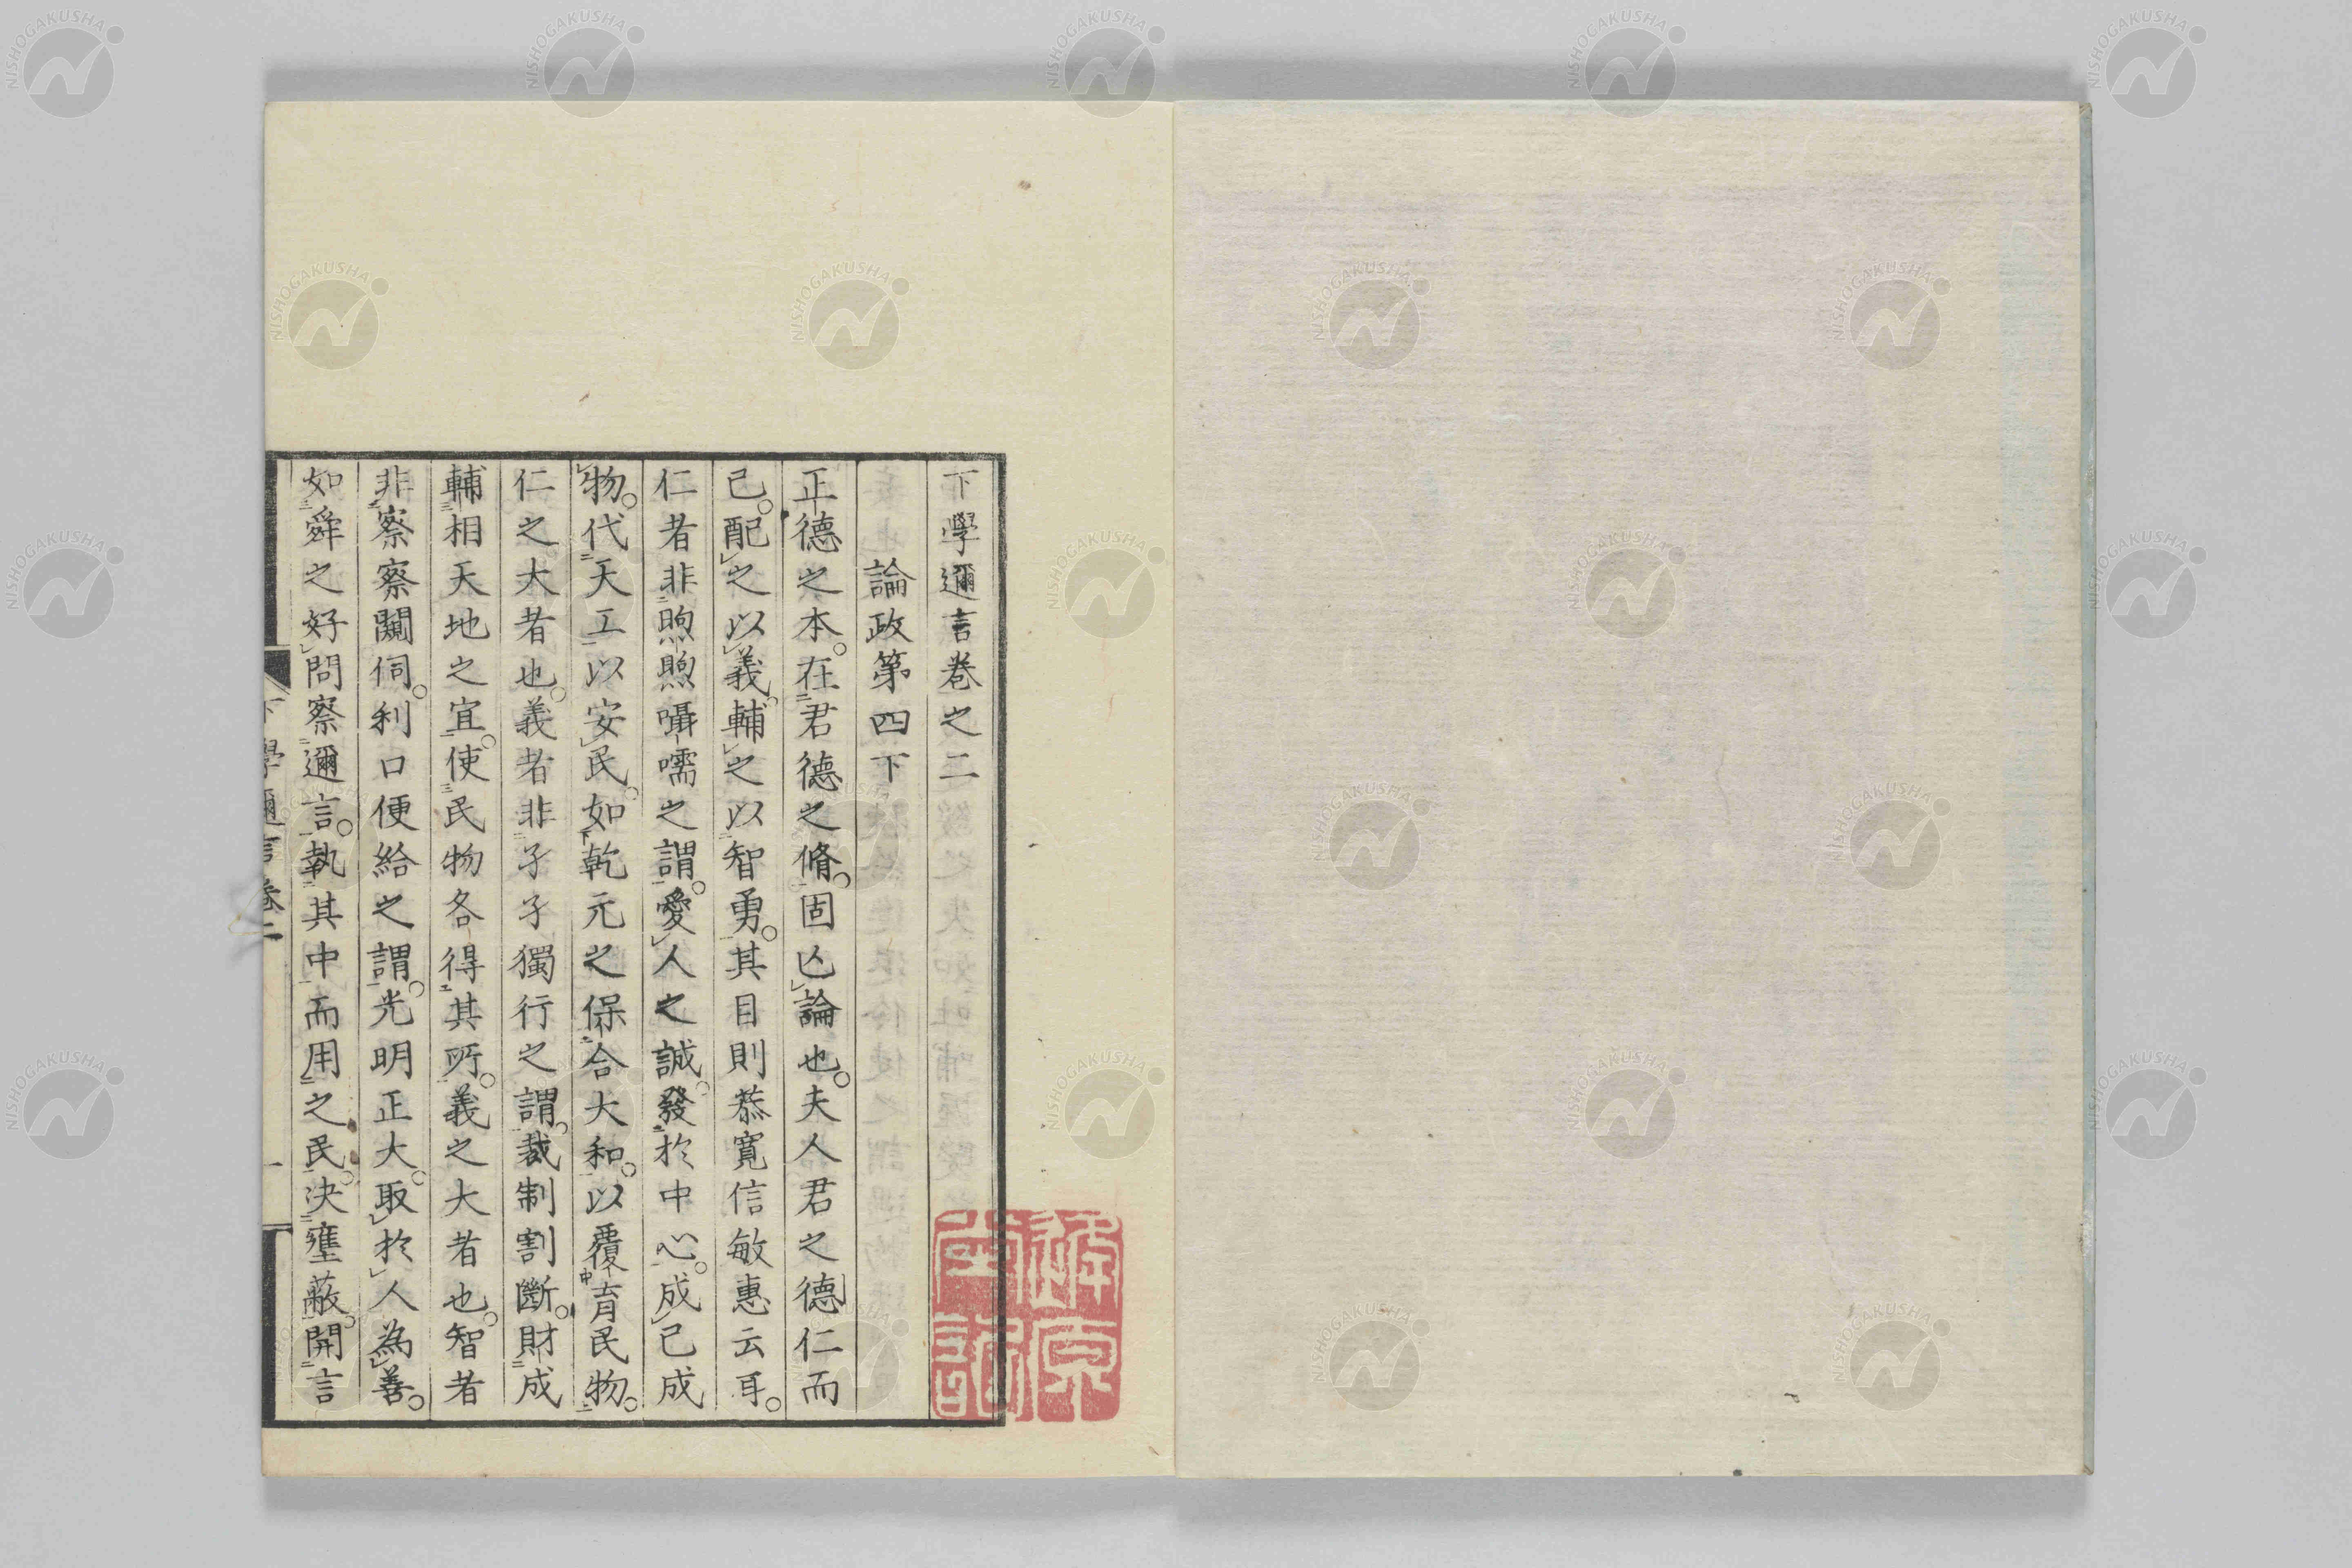 下學邇言卷之二
論政第四下
正德之本。在君德之脩。固亾論也。夫人君之德仁而
己。配之以義。輔之以智勇。其目則恭寛信敏惠云耳。
仁者非煦煦囁嚅之謂。愛人之誠。發於中心。成己成
物。代天工以安民。如乾元之保合大和。以覆育民物。
仁之大者也。義者非孑孑獨行之謂。裁制割斷。財成
輔相天地之宜。使民物各得其所。義之大者也。智者
非察察闚伺。利口便給之謂。光明正大。取於人為善。
如舜之好問察邇言。執其中而用之民。決壅蔽。開言
下學邇言卷二
一
NISHOGAKUSHA